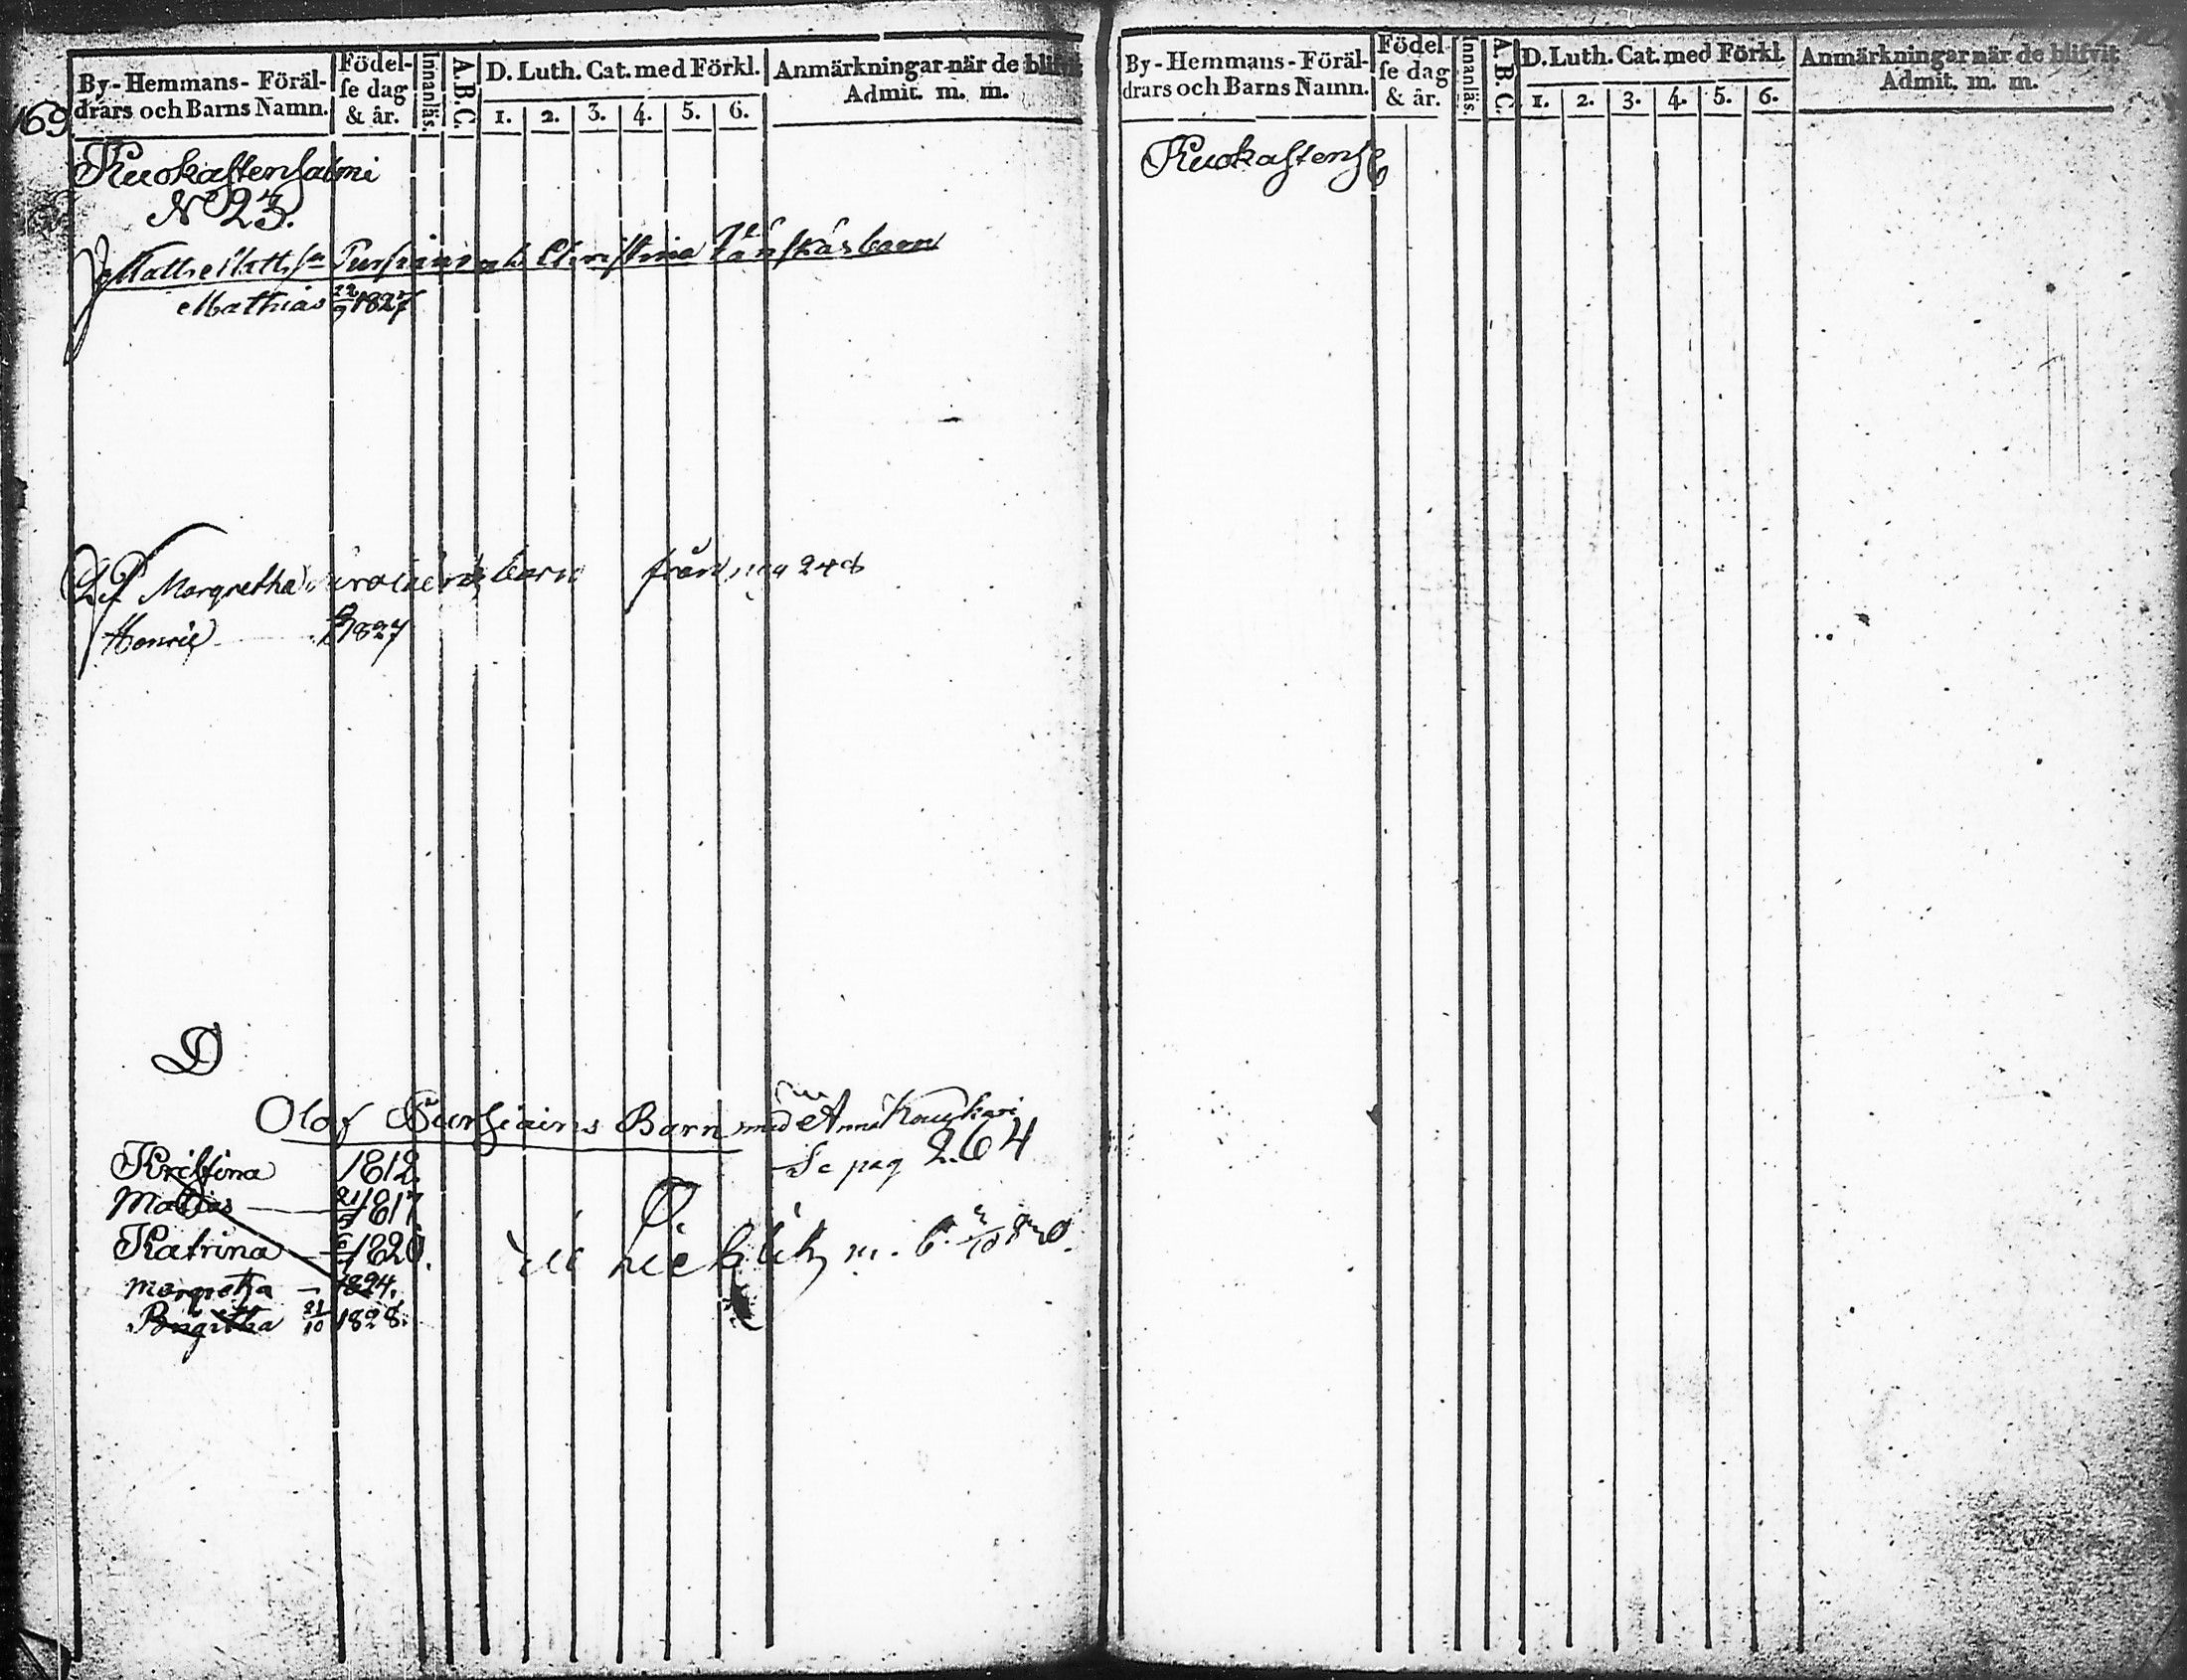 169
By-Hemmans-Föräl-
drars och Barns Namn.
Födel-
se dag
& år.
Innanläs.
A.B.C.
D. Luth. Cat. med Förkl.
1. 2. 3. 4. 5. 6.
Anmärkningar när de blifvit
Admit. m. m.
Kuokastensalmi
No 23.
Christina barn
Mathias 22/9 1827
Margretha barn från pag 248
Henric 1827
D
Olof Pursiains Barn med Anna
Se pag 264
Kristina 1812.
Matias 21/9 1817
Katrina 1820.
till m. b. 830.
Margretha — 1824.
Brigitha 21/10 1828.
By-Hemmans-Föräl-
drars och Barns Namn.
Födel-
se dag
& år.
Innanläs.
A.B.C.
D. Luth. Cat. med Förkl.
1. 2. 3. 4. 5. 6.
Anmärkningar när de blifvit
Admit. m. m.